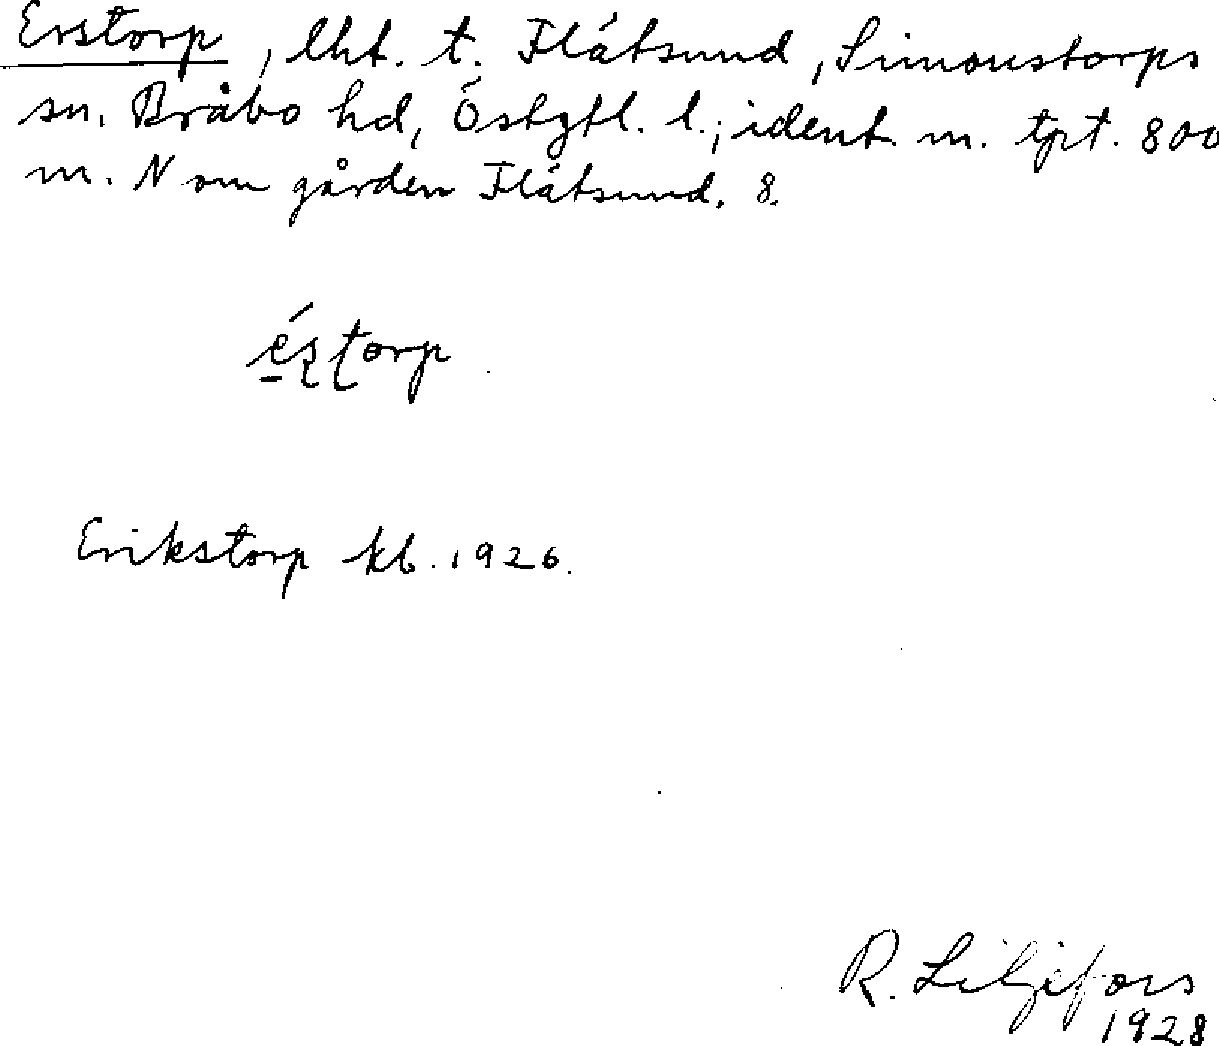 Erstorp, lht. t. Flátsund, Simonstorps
sn. Bråbo hd, Östgtl. l.; ident. m. tpt. 800
m. N om gården Flátsund. 8.
éstorp
Erikstorp kb. 1926.
R. Liljefors
1928